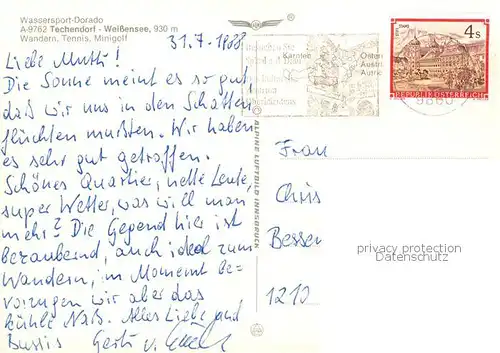 Wassersport-Dorado
A-9762 Techendorf - Weißensee, 930 m
Wandern, Tennis, Minigolf
31.7.1988
Liebe Mutti!
Die Sonne meint es so gut,
daß wir uns in den Schatten
flüchten mußten. Wir haben
es sehr gut getroffen.
Schönes Quartier, nette Leute,
super Wetter, was will man
mehr? Die Gegend hier ist
bezaubernd, auch ideal zum
Wandern, im Moment be-
vorzugen wir aber das
kühle Naß. Alles Liebe und
Bussis Gerti u.
© ALPINE LUFTBILD INNSBRUCK
Kärnten
Öster
Austri
Autri
STIFT STAMS
4s
REPUBLIK ÖSTERREICH
Frau
Chris
Besser
1210
privacy protection
Datenschutz